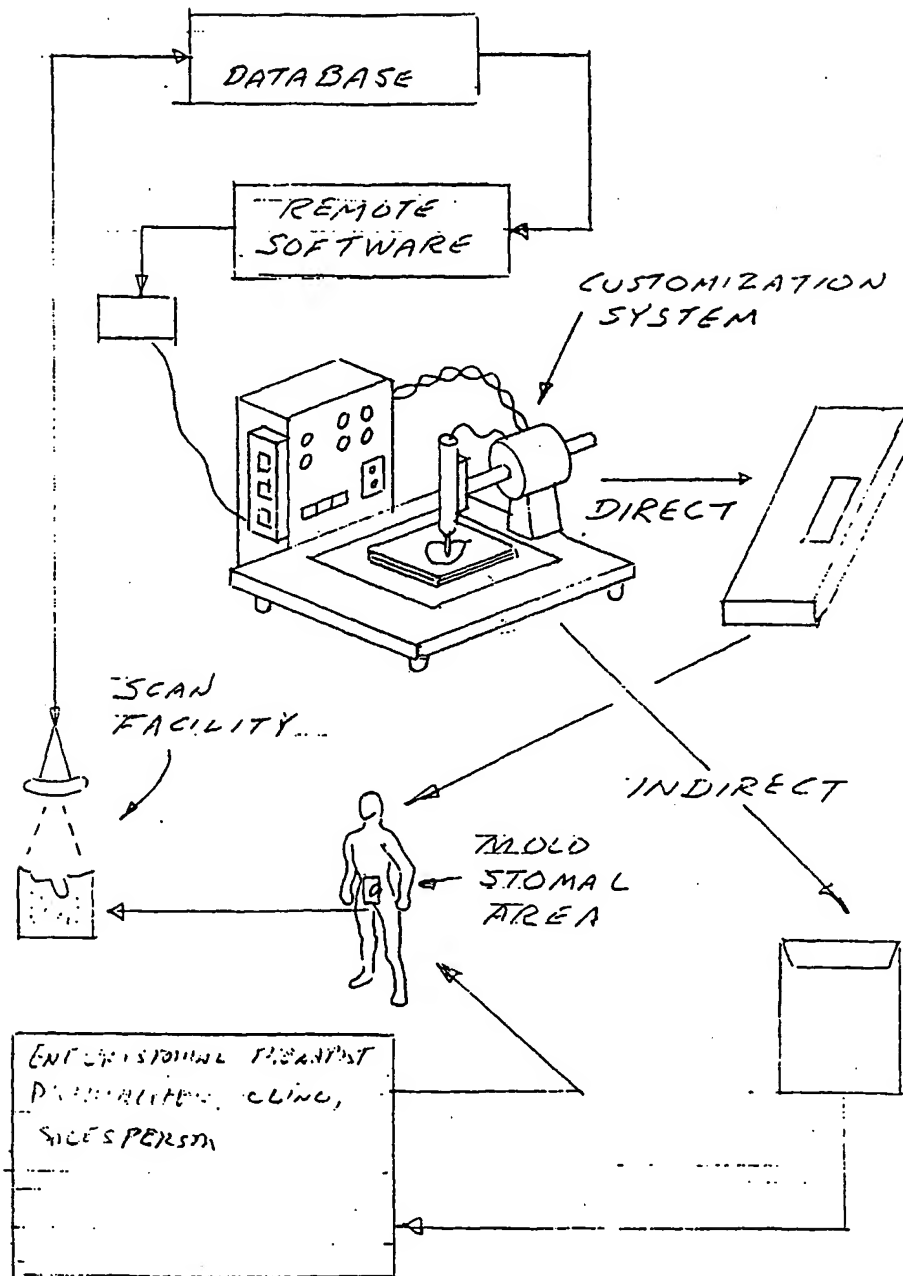 DATABASE
REMOTE
SOFTWARE
CUSTOMIZATION
SYSTEM
DIRECT
SCAN
FACILITY
INDIRECT
MOLD
STOMAL
AREA
THERAPIST
CLINIC,
SALESPERSON